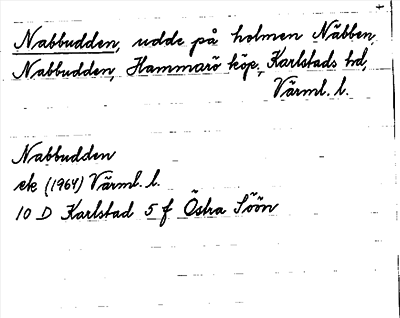 Nabbudden, udde på holmen Näbben,
Nabbudden, Hammarö köp., Karlstads hd,
Värml. l.
Nabbudden
ek (1964) Värml. l.
10 D Karlstad 5 f Östra Söön